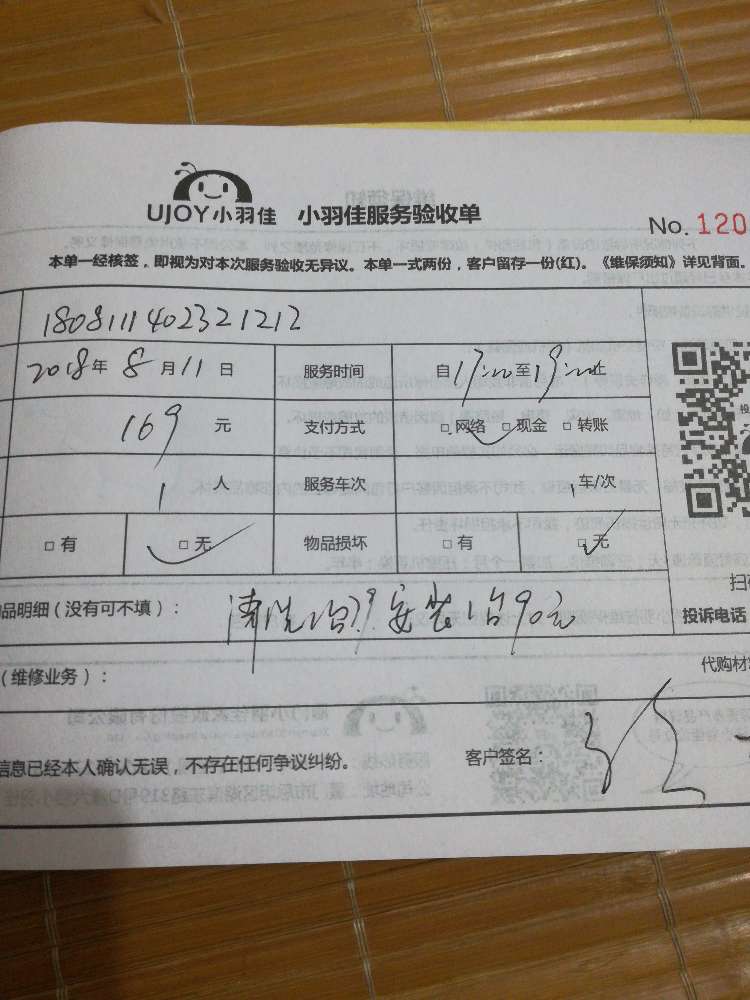 UJOY小羽佳 小羽佳服务验收单
No. 120
本单一经核签，即视为对本次服务验收无异议。本单一式两份，客户留存一份(红)。《维保须知》详见背面。
1808111402321212
2018年 8 月 11 日 服务时间 自17:00至19:00止
169 元 支付方式 □ 网络 □ 现金 □ 转账
1 人 服务车次 1 车/次
□ 有 □ 无 物品损坏 □ 有 □ 无
品明细（没有可不填）： 清洗1台79 安装1台90元
投诉电话
（维修业务）：
代购材
信息已经本人确认无误，不存在任何争议纠纷。 客户签名：